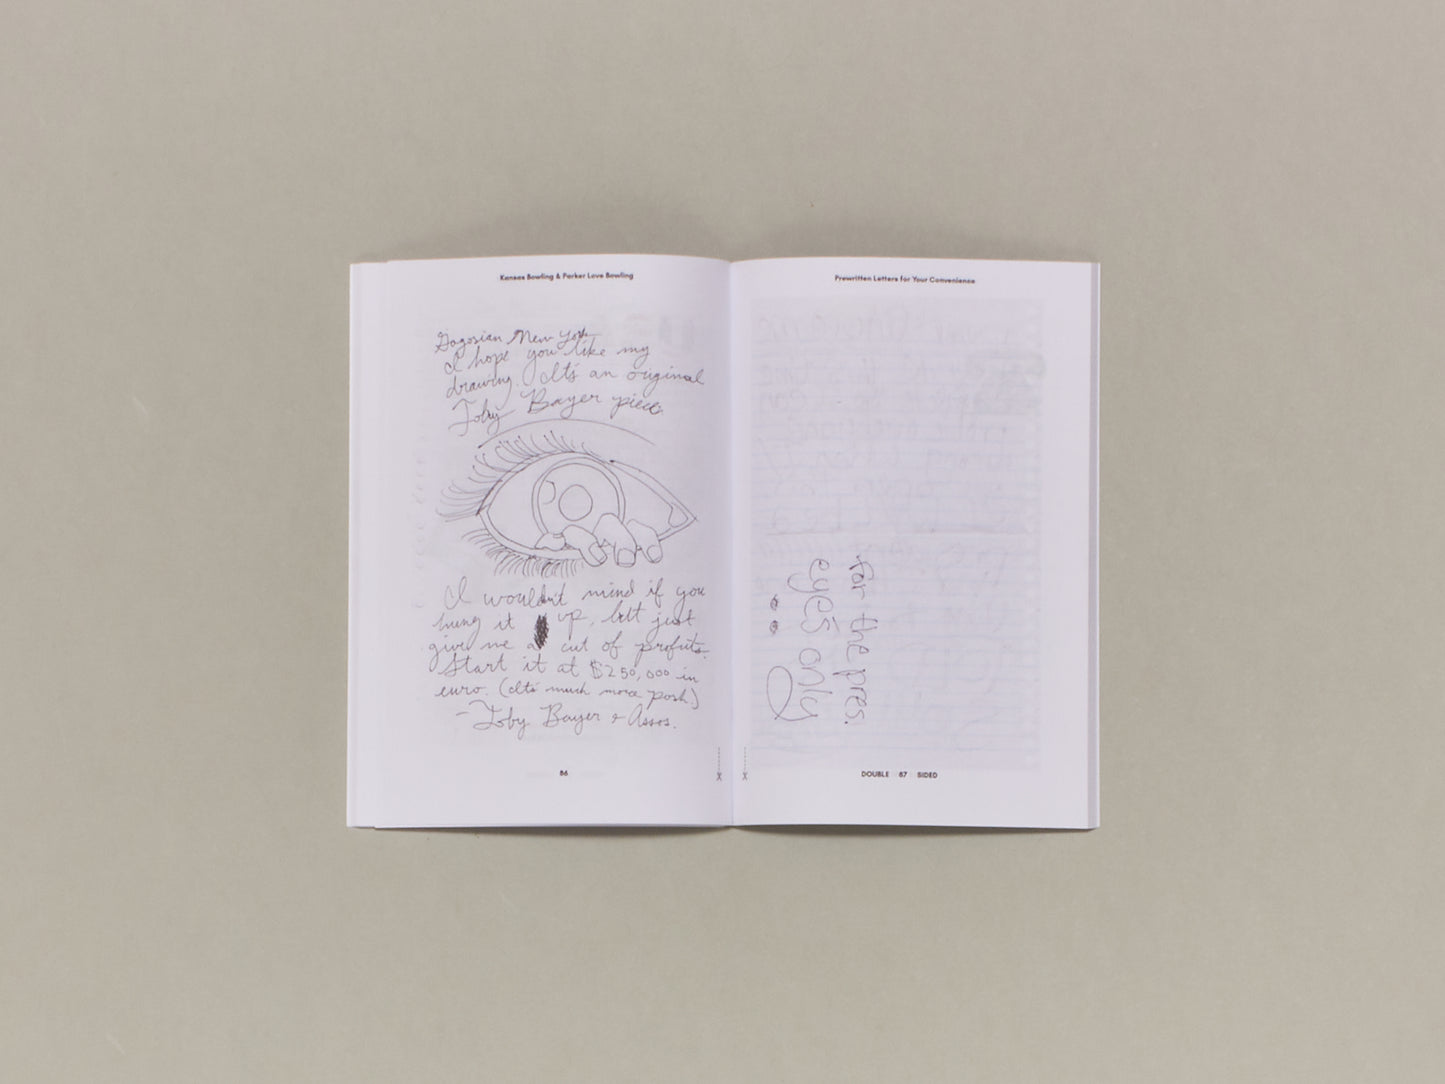 Kansas Bowling & Parker Love Bowling
Gagosian New York
I hope you like my
drawing. It's an original
Toby Bayer piece.
I wouldn't mind if you
hung it up, but just
give me a cut of profits.
Start it at $250,000 in
euro. (It's much more posh)
- Toby Bayer & Assos.
86
Prewritten Letters for Your Convenience
for the pres.
eyes only
DOUBLE 87 SIDED